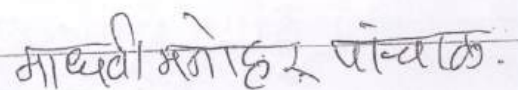 माधवी मनोहर पांचाळ.